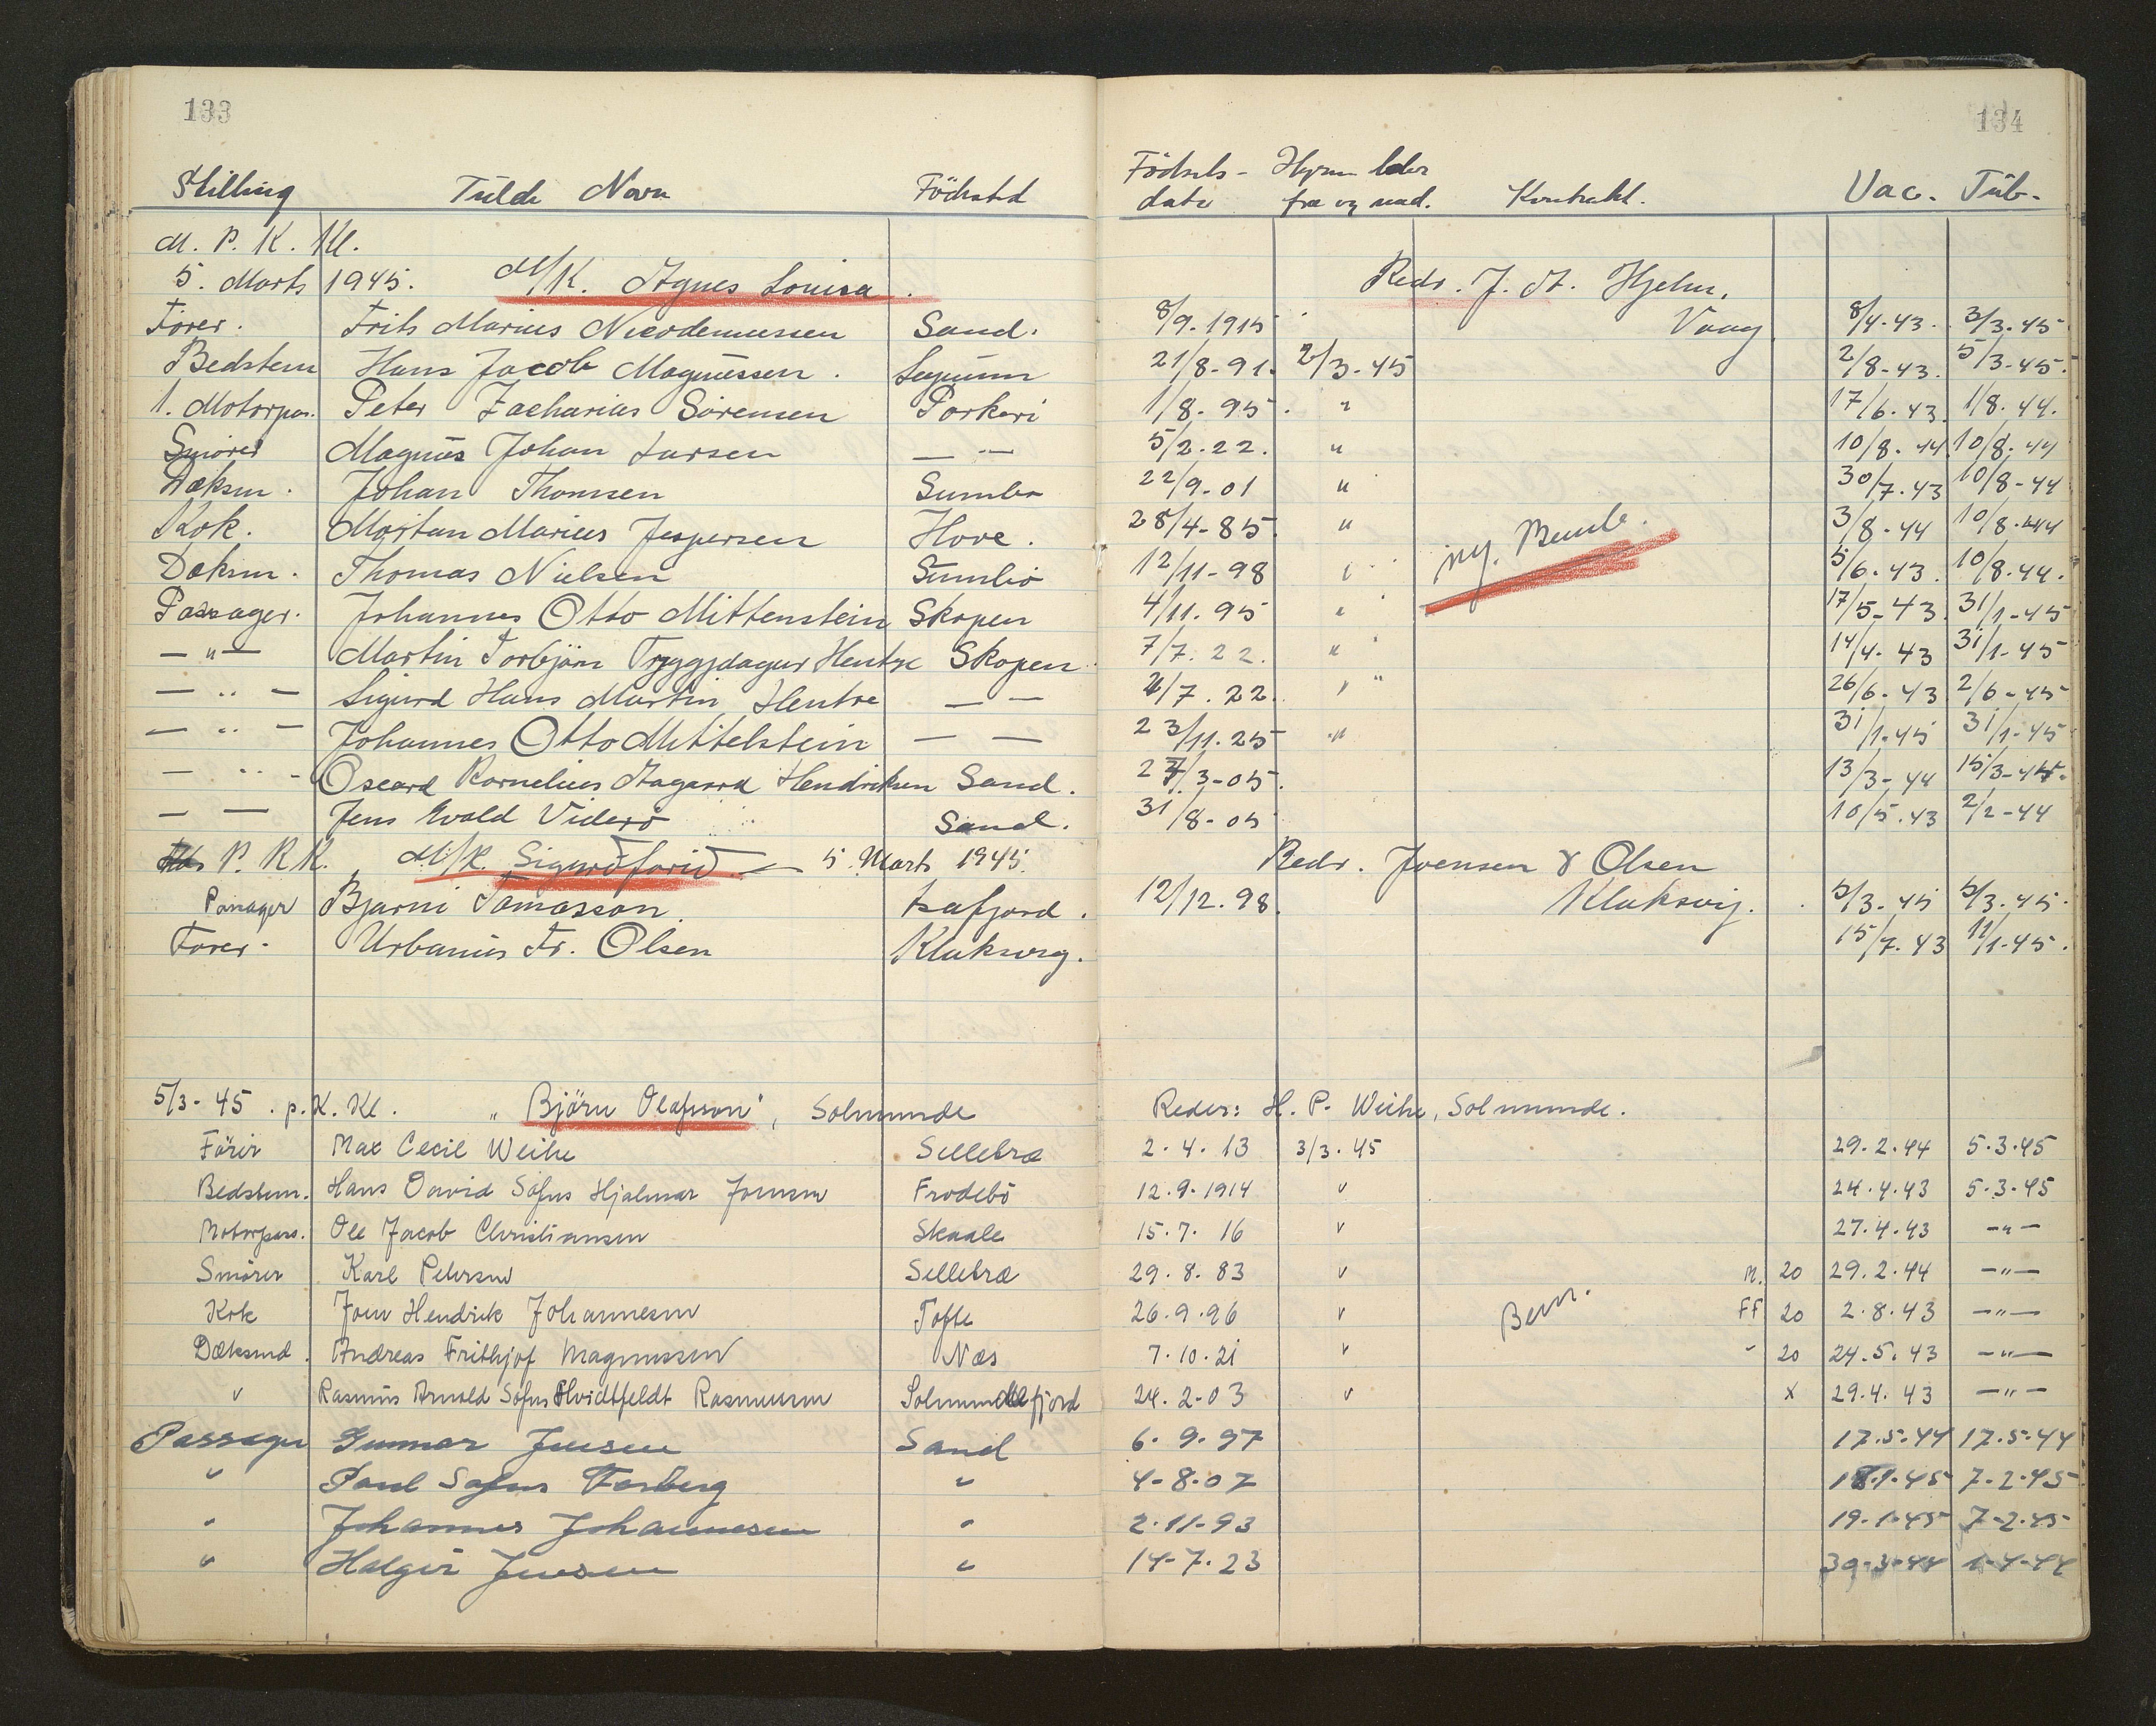 133
134
Stilling Fulde Navn Födested Födsels- Hyre löber
dato fra og med. Kontrakt. Vac. Tüb.
M. P. K. Kl.
5. Marts 1945. M/K. Agnes Louisa. Redr. J. A. Hjelm.
Förer. Frits Marius Nicodemussen Sand. 8/9.1915 Vaag 8/4-43. 3/3.45
Bedstem Hans Jacob Magnussen. 21/8-91. 2/3-45 2/8-43. 5/3-45.
1. Motorpas. Peter Zacharias Sörensen Porkeri 1/8-95. " 17/6.43 1/8.44.
Smörer Magnüs Johan Larsen — " — 5/2.22. " 10/8.44 10/8.44
Dæksm. Johan Thomsen Sumbö 22/9-01 " 30/7.43 10/8-44
Kok. Mortan Marius Jespersen Hove. 28/4-85 " 3/8-44 10/8.44
Dæksm. Thomas Nielsen Sumbö 12/11-98 " 5/6.43. 10/8.44.
Passager. Johannes Otto Mittenstein Skopen 4/11.95 " 17/5-43 31/1-45
— " — Martin Torbjörn Tryggjdagur Hentze Skopen 7/7.22. " 14/4-43 31/1-45
— " — Sigurd Hans Martin Hentze — — 4/7.22. " 26/6-43 2/6-45
— " — Johannes Otto Mittelstein — — 23/11.25 " 31/1-45 31/1-45
— " — Oscard Kornelius Aagaard Hendriksen Sand. 27/3-05. 13/3-44 15/3-45.
— — Jens Evald Viderö Sand. 31/8-05 10/5.43 2/2-44
P. K K. M/K. Sigurdforid — 5. Marts 1945. Redr. Joensen & Olsen
Passager Bjarni Tomasson Isafjord. 12/12.98. Klaksvig. 5/3.45 5/3.45.
Förer. Urbanus Fr. Olsen Klaksvig. 15/7.43 11/1-45.
5/3-45. p. K. Kl. "Björn Olafsson", Solmunde Reder: H. P. Weihe, Solmunde.
Förer Max Cecil Weihe Sellebræ 2.4.13 3/3.45 29.2.44 5.3.45
Bedstem. Hans David Sofus Hjalmar Joensen Frodebö 12.9.1914 v 24.4.43 5.3.45
Motorpas. Ole Jacob Christiansen Skaale 15.7.16 v 27.4.43 —"—
Smörer Karl Petersen Sellebræ 29.8.83 v M. 20 29.2.44 —"—
Kok Joen Hendrik Johannesen Tofte 26.9.96 v FF 20 2.8.43 —"—
Dæksmd. Andreas Frithjof Magnussen Næs 7.10.21 v - 20 24.5.43 —"—
v Rasmus Arnold Sofus Hvidtfeldt Rasmussen Solmundefjord 24.2-03 v x 29.4.43 —"—
Passager Gunnar Jensen Sand 6.9.97 17.5.44 17.5.44
" Paul Sofus Forberg " 4-8-07 18.1.45 7-2.45
" Johannes Johannesen " 2.11-93 19.1.45 7-2.45
" Holger Jensen " 14-7.23 30-3-44 1-4-44